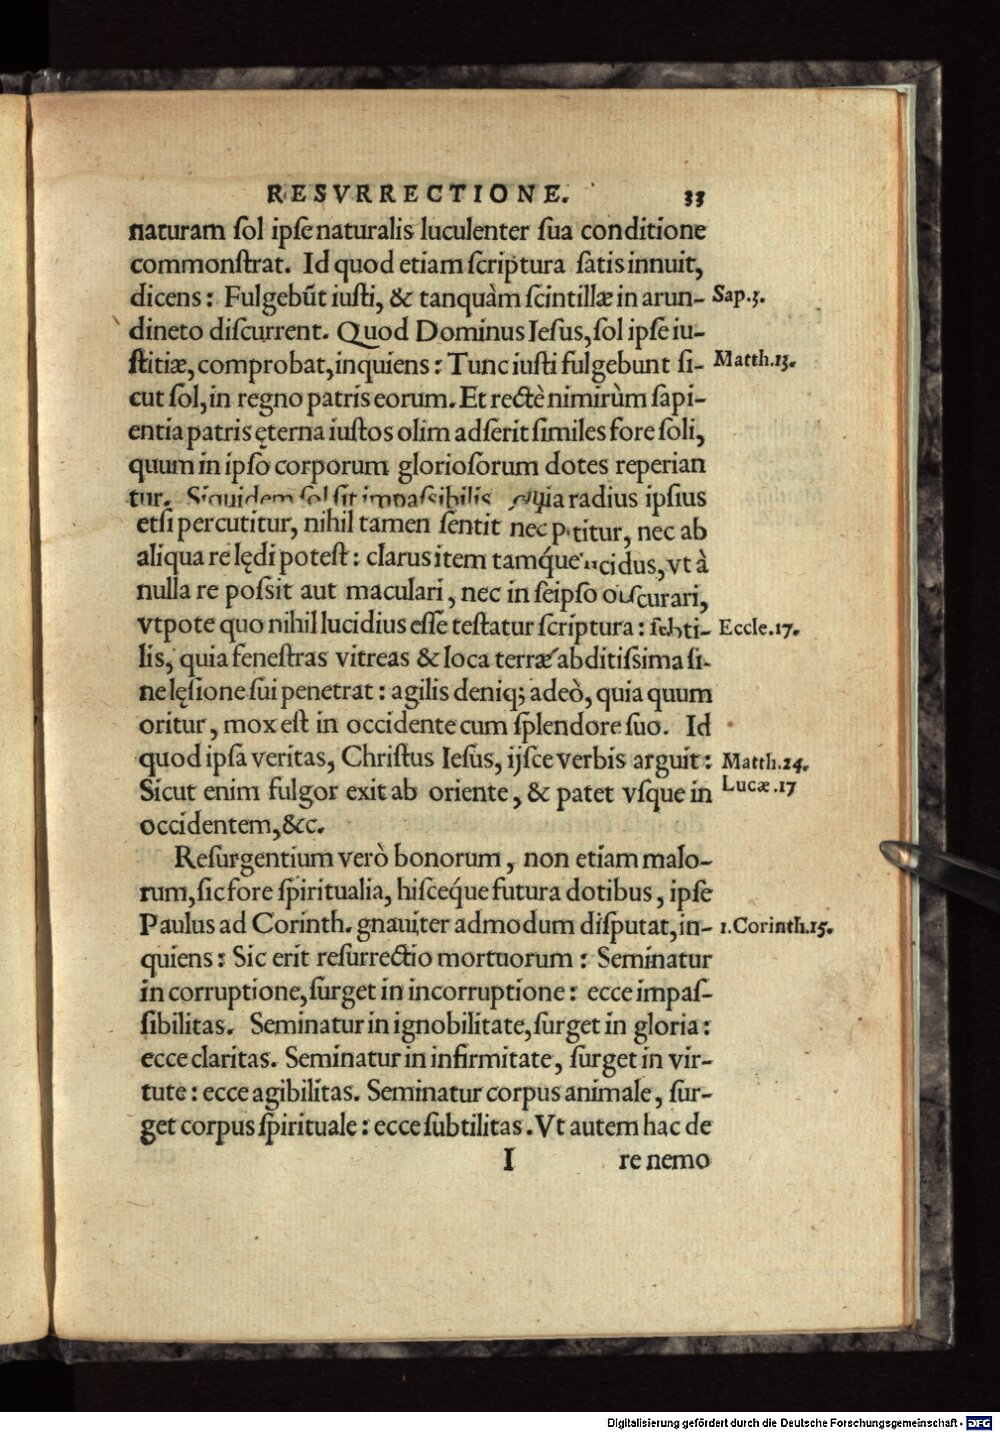 RESVRRECTIONE. 33
naturam ſol ipſe naturalis luculenter ſua conditione
commonſtrat. Id quod etiam ſcriptura ſatis innuit,
dicens: Fulgebūt iuſti, & tanquàm ſcintillæ in arun- Sap.3.
dineto diſcurrent. Quod Dominus Ieſus, ſol ipſe iu-
ſtitiæ, comprobat, inquiens: Tunc iuſti fulgebunt ſi- Matth.13.
cut ſol, in regno patris eorum. Et rectè nimirùm ſapi-
entia patris ęterna iuſtos olim adſerit ſimiles fore ſoli,
quum in ipſo corporum glorioſorum dotes reperian
tur. Siquidem ſol ſit impaſsibilis quia radius ipſius
etſi percutitur, nihil tamen ſentit nec titur, nec ab
aliqua re lędi poteſt: clarus item tamq́ue cidus, vt à
nulla re poſsit aut maculari, nec in ſeipſo obſcurari,
vtpote quo nihil lucidius eſſe teſtatur ſcriptura: ſubti- Eccle.17.
lis, quia feneſtras vitreas & loca terræ abditiſsima ſi-
ne lęſione ſui penetrat: agilis deniq; adeò, quia quum
oritur, mox eſt in occidente cum ſplendore ſuo. Id
quod ipſa veritas, Chriſtus Ieſus, ijſce verbis arguit: Matth.24.
Sicut enim fulgor exit ab oriente, & patet vſque in Lucæ.17
occidentem, &c.
Reſurgentium verò bonorum, non etiam malo-
rum, ſic fore ſpiritualia, hiſceq́ue futura dotibus, ipſe
Paulus ad Corinth. gnauiter admodum diſputat, in- 1.Corinth.15.
quiens: Sic erit reſurrectio mortuorum: Seminatur
in corruptione, ſurget in incorruptione: ecce impaſ-
ſibilitas. Seminatur in ignobilitate, ſurget in gloria:
ecce claritas. Seminatur in infirmitate, ſurget in vir-
tute: ecce agibilitas. Seminatur corpus animale, ſur-
get corpus ſpirituale: ecce ſubtilitas. Vt autem hac de
I re nemo
Digitalisierung gefördert durch die Deutsche Forschungsgemeinschaft - DFG